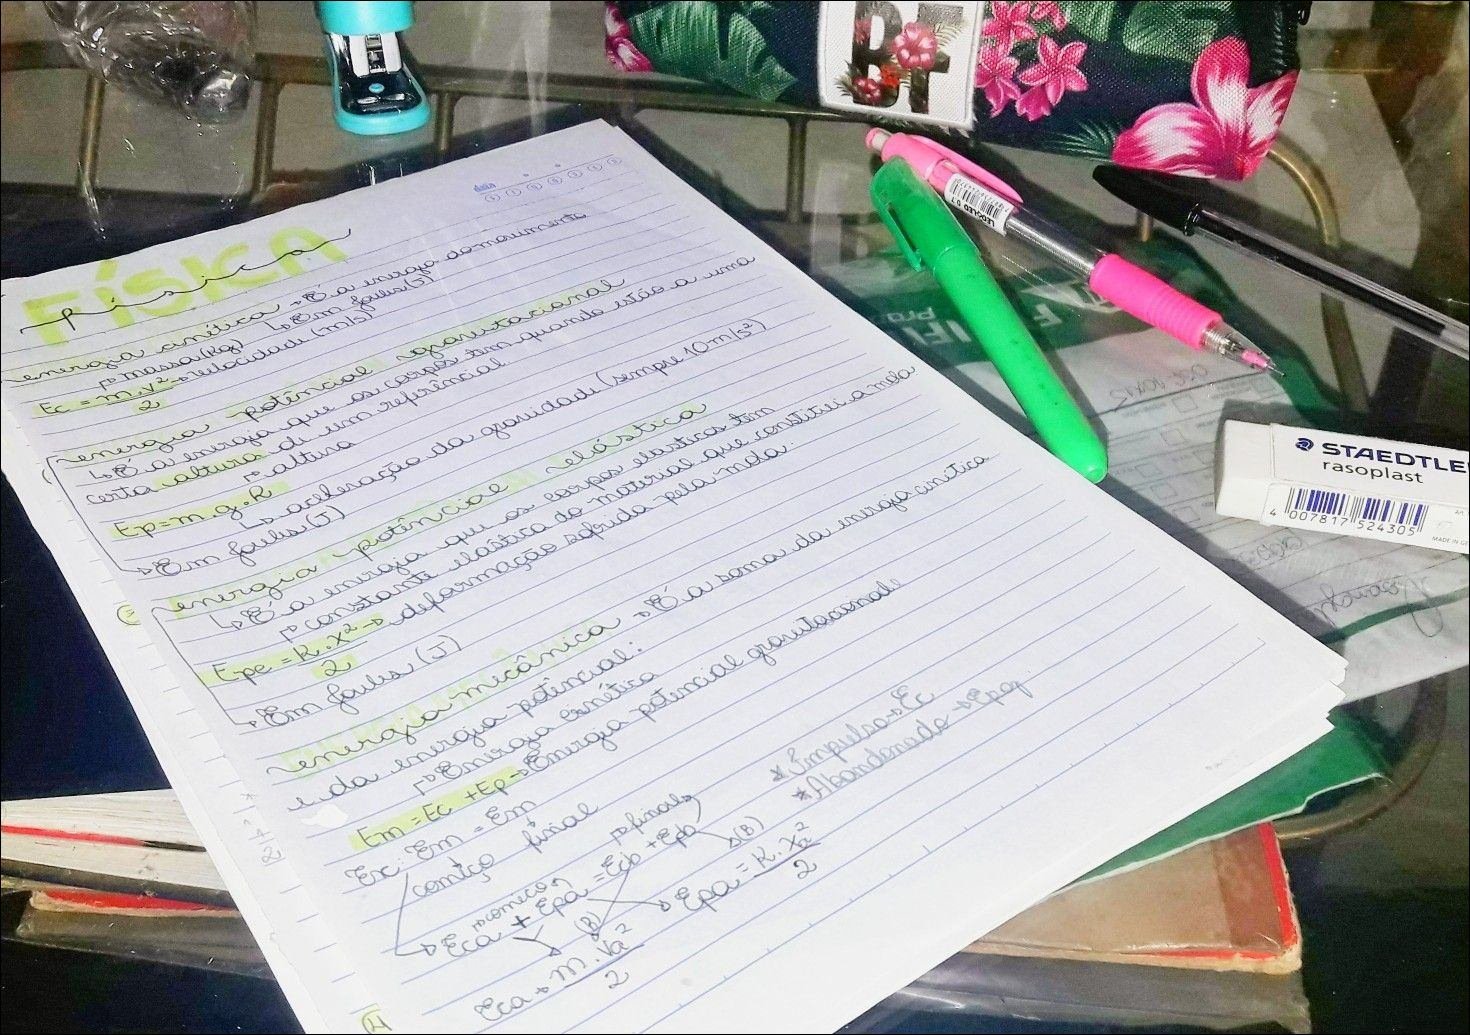 FÍSICA
Física
energia cinética → É a energia do movimento
↳ Em joules (J)
massa (Kg)
Ec = m.v² → velocidade (m/s)
2
energia potêncial gravitacional
↳ É a energia que os corpos tem quando estão a uma
certa altura de um referêncial
altura
Ep = m.g.h
↳ aceleração da gravidade (sempre 10 m/s²)
→ Em joules (J)
energia potêncial elástica
↳ É a energia que os corpos elasticos tem
constante elástica do material que constitui a mola
Epe = K.x² → deformação sofrida pela mola.
2
→ Em joules (J)
energia mecânica → É a soma da energia cinética
e da energia potêncial:
Energia cinética
Em = Ec + Ep → Energia potencial gravitacional
Ex: Em = Em
começo final
* Impulso → Ec
* Abandonado → Epg
começo
final
Eca + Epa = Ecb + Epb
(B)
(B)
Epa = K.x²
2
Eca → m.va²
2
STAEDTLE
rasoplast
4 007817 524305
MADE IN GE